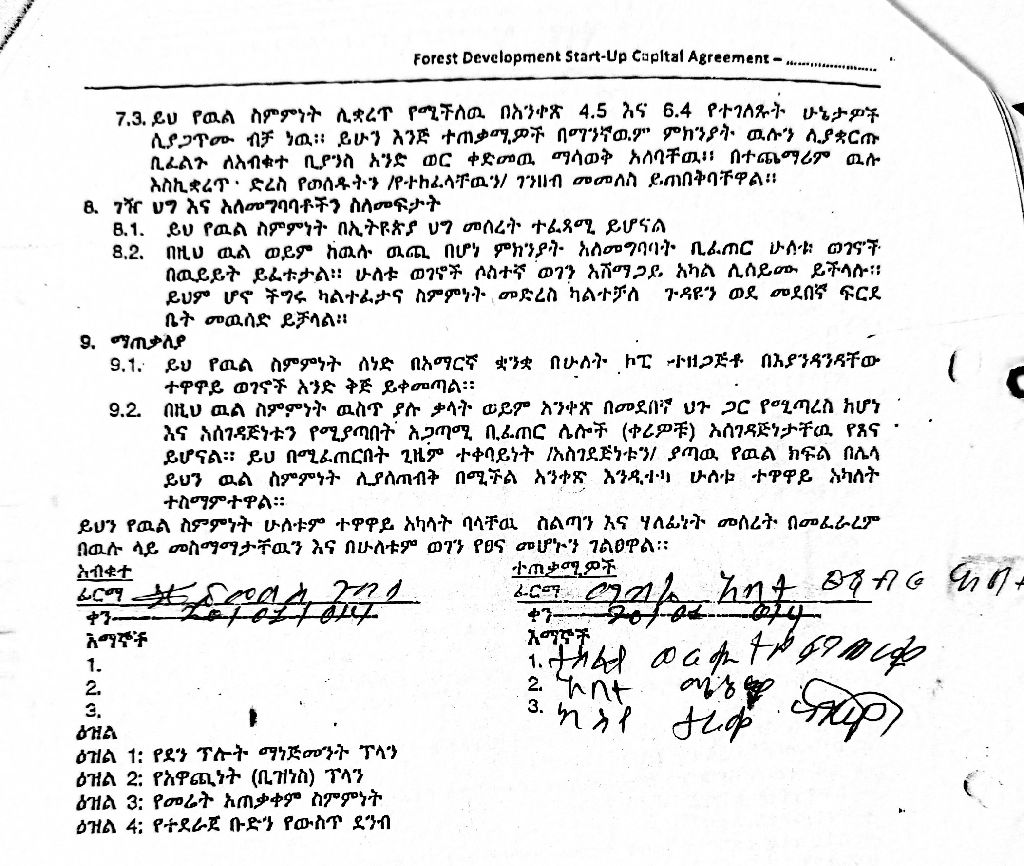 Forest Development Start-Up Capital Agreement – ........................
7.3. ይህ የዉል ስምምነት ሊቋረጥ የሚችለዉ በአንቀጽ 4.5 እና 6.4 የተገለጹት ሁኔታዎች
ሲያጋጥሙ ብቻ ነዉ። ይሁን እንጅ ተጠቃሚዎች በማንኛዉም ምክንያት ዉሉን ሲያቋርጡ
ቢፈልጉ ለአብቁተ ቢያንስ አንድ ወር ቀድመዉ ማሳወቅ አለባቸዉ። በተጨማሪም ዉሉ
እስኪቋረጥ ድረስ የወሰዱትን /የተከፈላቸዉን/ ገንዘብ መመለስ ይጠበቅባቸዋል።
8. ገዥ ህግ እና አለመግባባቶችን ስለመፍታት
8.1. ይህ የዉል ስምምነት በኢትዩጵያ ህግ መሰረት ተፈጻሚ ይሆናል
8.2. በዚህ ዉል ወይም ከዉሉ ዉጪ በሆነ ምክንያት አለመግባባት ቢፈጠር ሁለቱ ወገኖች
በዉይይት ይፈቱታል። ሁለቱ ወገኖች ሶስተኛ ወገን አሸማጋይ አካል ሊሰይሙ ይችላሉ።
ይህም ሆኖ ችግሩ ካልተፈታና ስምምነት መድረስ ካልተቻለ ጉዳዩን ወደ መደበኛ ፍርደ
ቤት መዉሰድ ይቻላል።
9. ማጠቃለያ
9.1. ይህ የዉል ስምምነት ሰነድ በአማርኛ ቋንቋ በሁለት ኮፒ ተዘጋጅቶ በእያንዳንዳቸው
ተዋዋይ ወገኖች አንድ ቅጅ ይቀመጣል።
9.2. በዚህ ዉል ስምምነት ዉስጥ ያሉ ቃላት ወይም አንቀጽ በመደበኛ ህጉ ጋር የሚጣረስ ከሆነ
እና አስገዳጅነቱን የሚያጣበት አጋጣሚ ቢፈጠር ሌሎች (ቀሪዎቹ) አስገዳጅነታቸዉ የጸና
ይሆናል። ይህ በሚፈጠርበት ጊዜም ተቀባይነት /አስገደጅነቱን/ ያጣዉ የዉል ክፍል በሌላ
ይህን ዉል ስምምነት ሊያስጠብቅ በሚችል አንቀጽ እንዲተካ ሁለቱ ተዋዋይ አካለት
ተስማምተዋል።
ይህን የዉል ስምምነት ሁለቱም ተዋዋይ አካላት ባላቸዉ ስልጣን እና ሃላፊነት መሰረት በመፈራረም
በዉሉ ላይ መስማማታቸዉን እና በሁለቱም ወገን የፀና መሆኑን ገልፀዋል።
አብቁተ
ፊርማ
ቀን 20/02/014
እማኞች
1.
2.
3.
ተጠቃሚዎች
ፊርማ አበተ
ቀን 20/02 014
እማኞች
1.
2. አበተ
3.
ዕዝል
ዕዝል 1: የደን ፕሎት ማነጅመንት ፕላን
ዕዝል 2: የአዋጪነት (ቢዝነስ) ፕላን
ዕዝል 3: የመሬት አጠቃቀም ስምምነት
ዕዝል 4: የተደራጀ ቡድን የውስጥ ደንብ